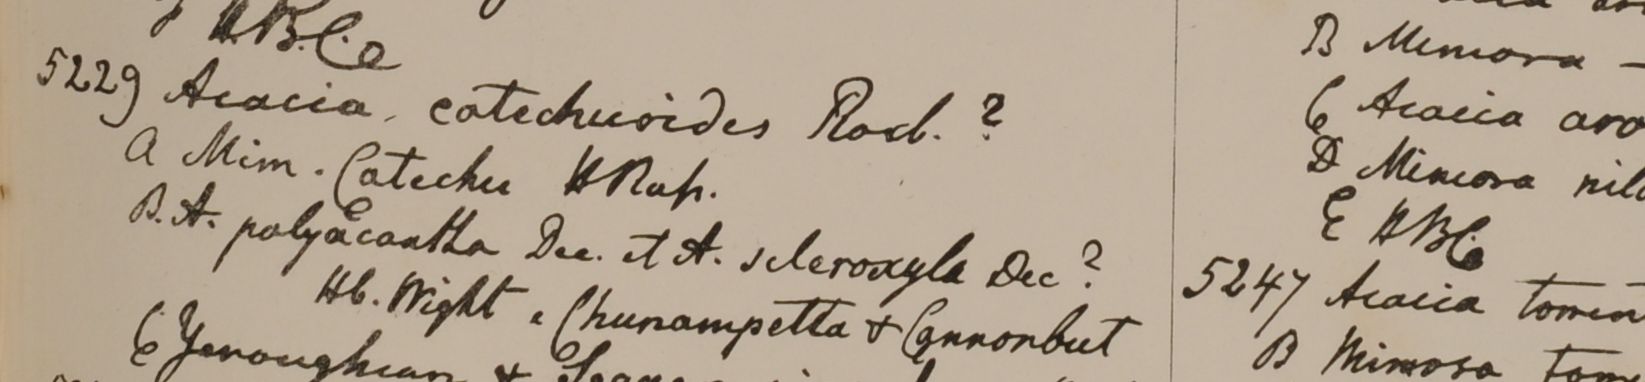 H.B.C.
5229 Acacia. catechuoides Roxb. ?
A Mim. Catechu H Rup.
B. A. polyacantha Dec. et A. scleroxyla Dec ?
Hb. Wight. Chunampetta & Cannonbut
C &
B Mimosa —
C Acacia
D Mimosa
E HBC
5247 Acacia
B Mimosa